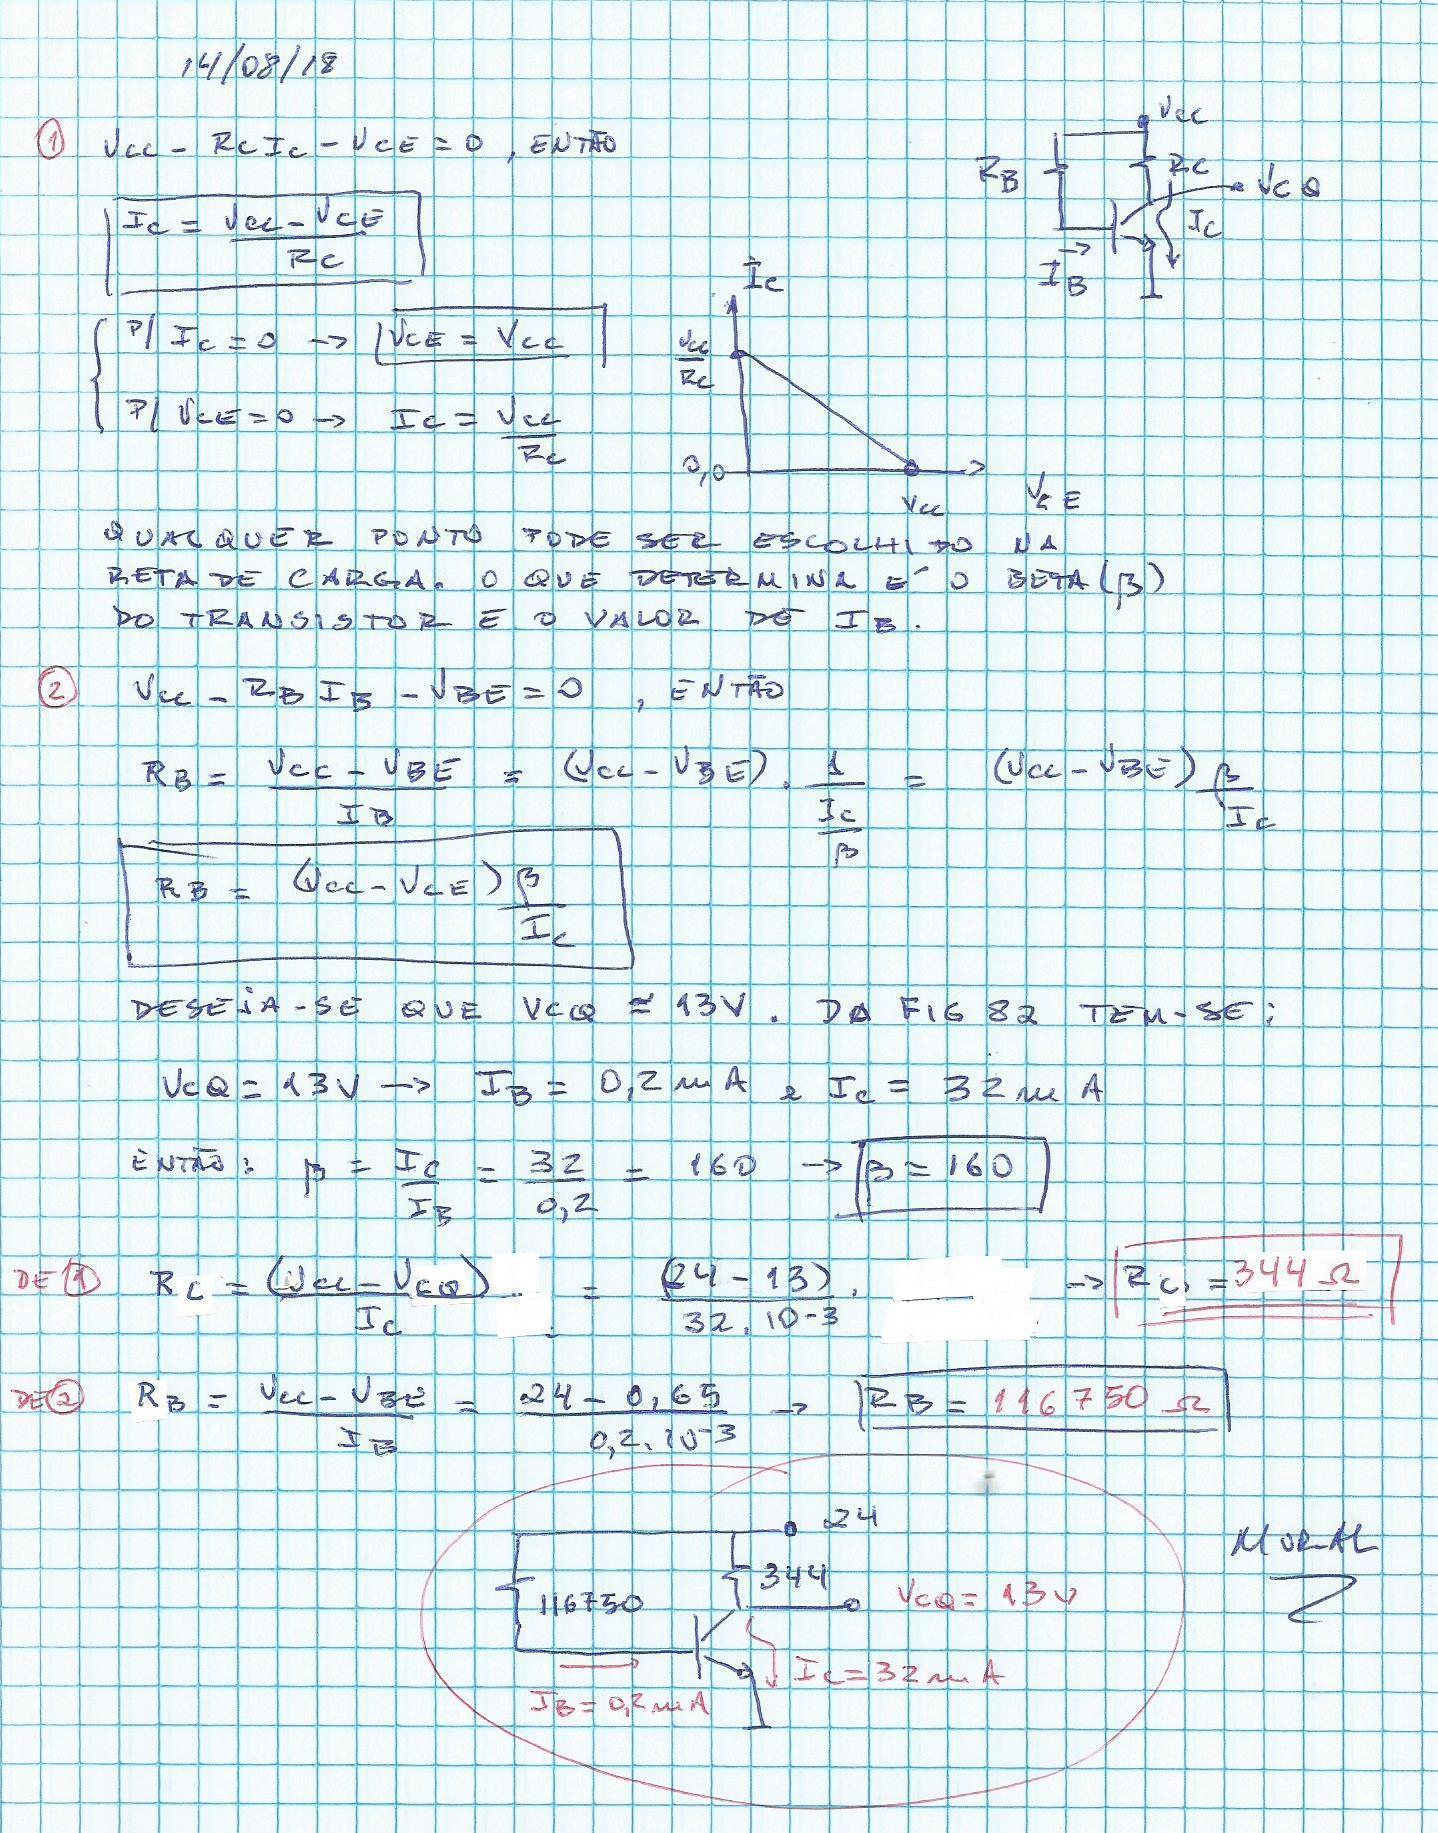 14/08/18
① VCC - RC IC - VCE = 0, ENTÃO
IC = VCC - VCE / RC
P/ IC = 0 → VCE = VCC
P/ VCE = 0 → IC = VCC / RC
VCC
RB
RC
VCQ
IC
IB
IC
VCC / RC
0,0
VCC
VCE
QUALQUER PONTO PODE SER ESCOLHIDO NA
RETA DE CARGA. O QUE DETERMINA É O BETA (β)
DO TRANSISTOR E O VALOR DE IB.
② VCC - RB IB - VBE = 0, ENTÃO
RB = VCC - VBE / IB = (VCC - VBE) . 1 / IC / β = (VCC - VBE) β / IC
RB = (VCC - VCE) β / IC
DESEJA-SE QUE VCQ ≅ 13V. DA FIG 82 TEM-SE:
VCQ = 13V → IB = 0,2 mA e IC = 32 mA
ENTÃO: β = IC / IB = 32 / 0,2 = 160 → β = 160
DE ① RC = (VCC - VCQ) / IC = (24 - 13) / 32.10-3 . → RC = 344 Ω
DE ② RB = VCC - VBE / IB = 24 - 0,65 / 0,2.10-3 → RB = 116750 Ω
24
344
116750
VCQ = 13V
IC = 32 mA
IB = 0,2 mA